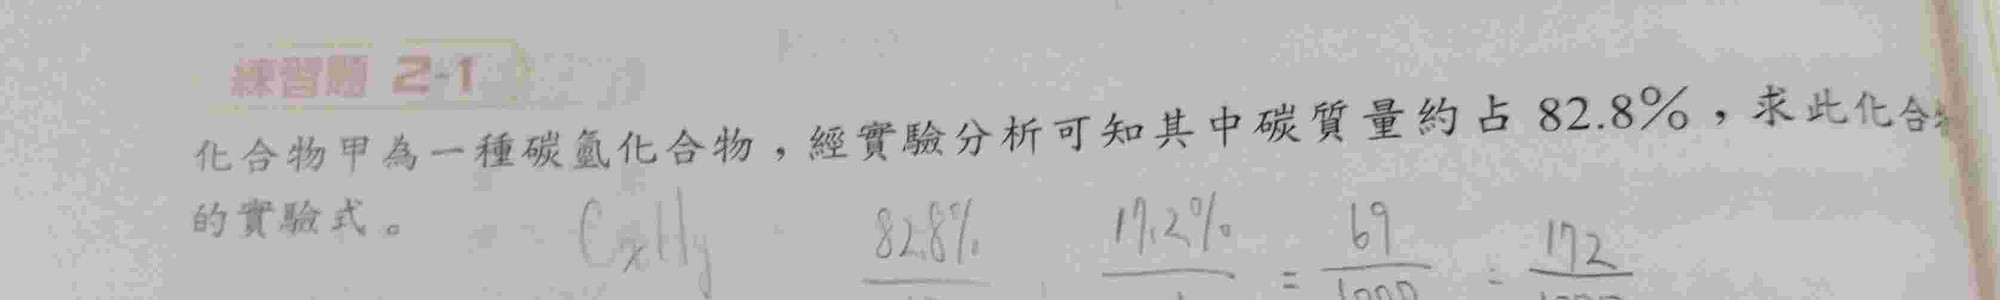 練習題 2-1
化合物甲為一種碳氫化合物，經實驗分析可知其中碳質量約占 82.8%，求此化合
的實驗式。
CxHy 82.8% 17.2% = 69 : 172
1000